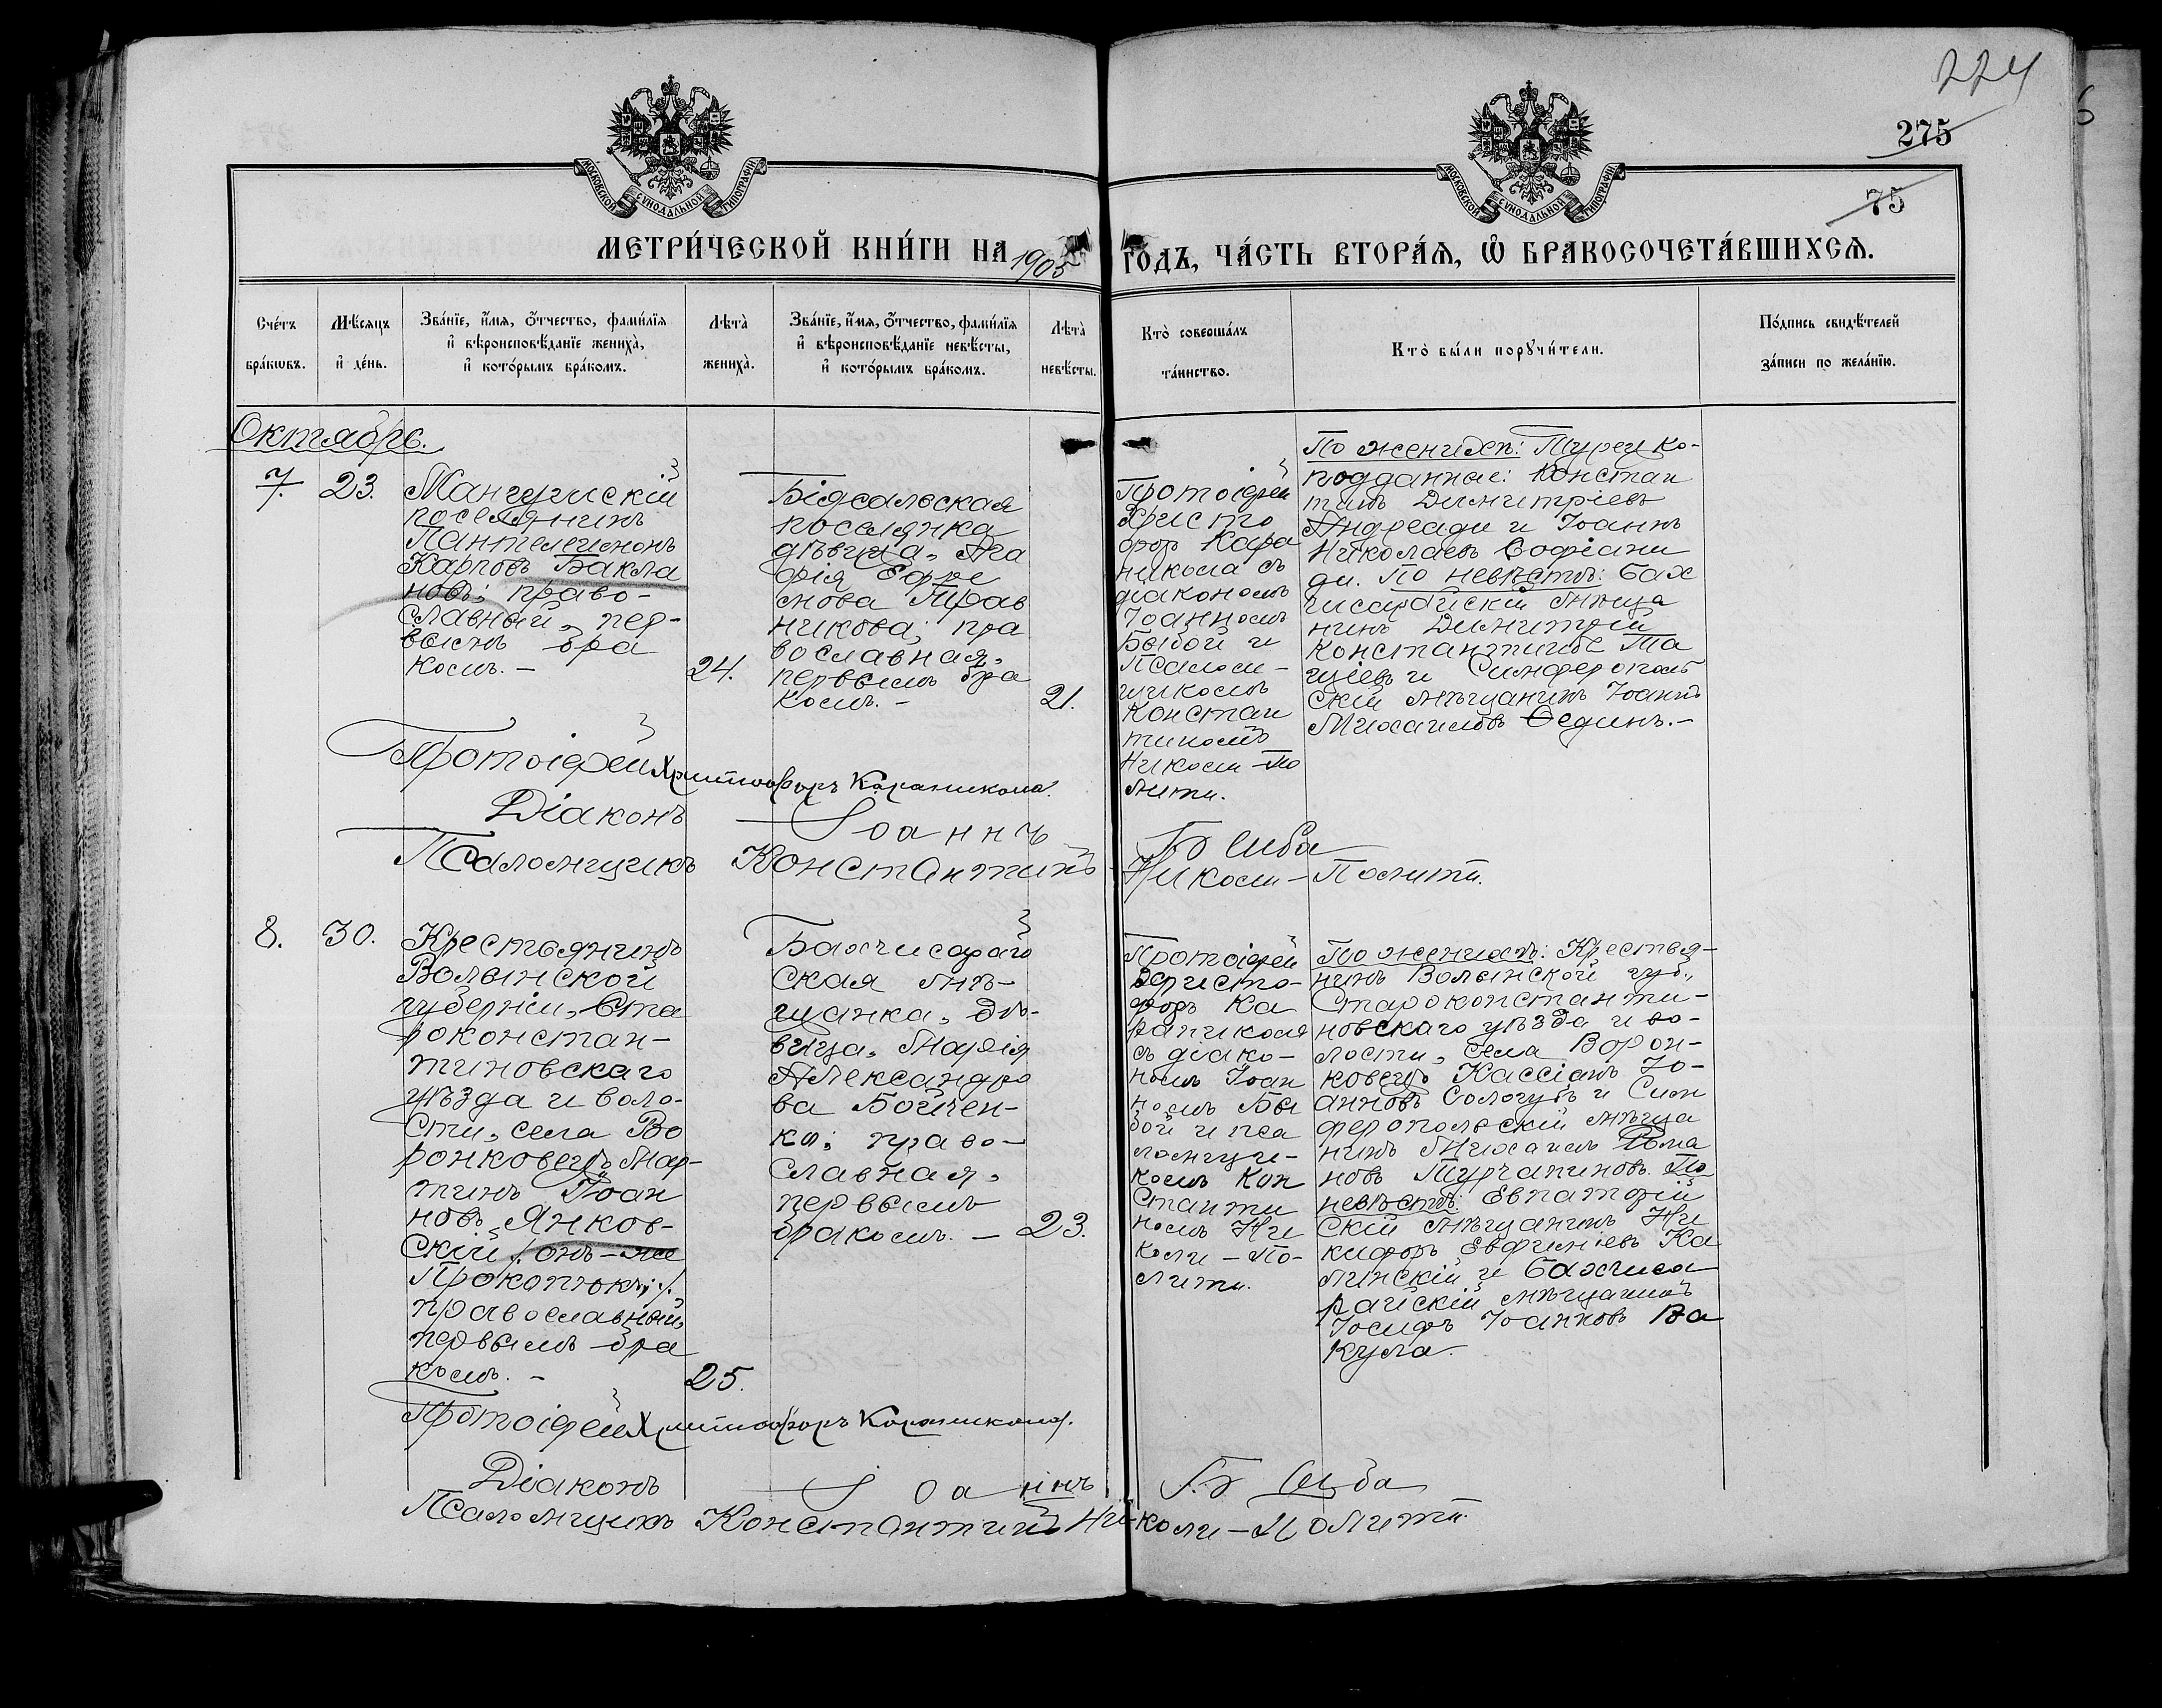 224
275
75
МОСКОВСКОЙ СѴНОДАЛЬНОЙ ТИПОГРАФІИ
МОСКОВСКОЙ СѴНОДАЛЬНОЙ ТИПОГРАФІИ
МЕТРИ́ЧЕСКОЙ КНИ́ГИ НА 1905 ГОДЪ, ЧА́СТЬ ВТОРА́Ѧ, Ѽ БРАКОСОЧЕТА́ВШИХСѦ.
Сче́тъ
бра́кѡвъ.
Мѣ́сѧцъ
и҆ де́нь.
Зва́нїе, и҆́мѧ, ѻ҆́тчество, фами́лїѧ
и҆ вѣроисповѣ́данїе жениха̀,
и҆ кото́рымъ бра́комъ.
Лѣта̀
жениха̀.
Зва́нїе, и҆́мѧ, ѻ҆́тчество, фами́лїѧ
и҆ вѣроисповѣ́данїе невѣ́сты,
и҆ кото́рымъ бра́комъ.
Лѣта̀
невѣ́сты.
Кто̀ соверша́лъ
та́инство.
Кто̀ бы́ли порꙋчи́тели.
По́дпись свидѣ́телей
за́писи по жела́нїю.
Октябрь.
7. 23.
Мангушскій
поселянинъ
Пантелеимонъ
Карповъ Бакла
новъ, право-
славный, пер-
вымъ бра
комъ. -
24.
Біясальская
поселянка
дѣвица, Ага
фія Ефре
мова Трав
никова; пра
вославная,
первымъ бра
комъ. -
21.
Протоіерей
Христо
форъ Кара
никола съ
діакономъ
Іоанномъ
Бибой и
Псалом-
щикомъ
Констан
тиномъ
Николи-По
лити.
По женихѣ: Турецко-
подданные: Констан
тинъ Димитріевъ
Андреади и Іоаннъ
Николаевъ Софіани
ди. По невѣстѣ: Бах
чисарайскій мѣща
нинъ Димитрій
Константиновъ Та
ціевъ и Симферополь
скій мѣщанинъ Іоаннъ
Михаиловъ Ѳединъ. -
Протоіерей Христофоръ Караникола.
Діаконъ Іоаннъ Биба
Псаломщикъ Константинъ Николи-Полити.
8. 30.
Крестьянинъ
Волынской
губерніи, Ста
роконстан-
тиновскаго
уѣзда и воло-
сти, села Во
ронковецъ Мар-
тинъ Іоан
новъ Янков-
скій /:онъ-же
Прокопюкъ:/,
православный,
первымъ бра
комъ. -
25.
Бахчисарай
ская мѣ-
щанка, дѣ-
вица, Марія
Александро
ва Бойчен-
ко; право-
славная,
первымъ
бракомъ. -
23.
Протоіерей
Христо-
форъ Ка
раникола
съ діако-
номъ Іоан
номъ Би
бой и пса
ломщи-
комъ Кон
станти
номъ Ни
коли-По-
лити.
По женихѣ: Крестья-
нинъ Волынской губ.,
Староконстанти-
новскаго уѣзда и во-
лости, села Ворон-
ковецъ Кассіанъ Іо-
анновъ Сологубъ и Сим
феропольскій мѣща
нинъ Михаилъ Рома
новъ Турчаниновъ. По
невѣстѣ: Евпаторій
скій мѣщанинъ Ни
кифоръ Евфиміевъ Ка
линскій и Бахчиса
райскій мѣщанинъ
Іосифъ Іоанновъ Ва
кула.
Протоіерей Христофоръ Караникола.
Діаконъ Іоаннъ Биба
Псаломщикъ Константинъ Николи-Полити.